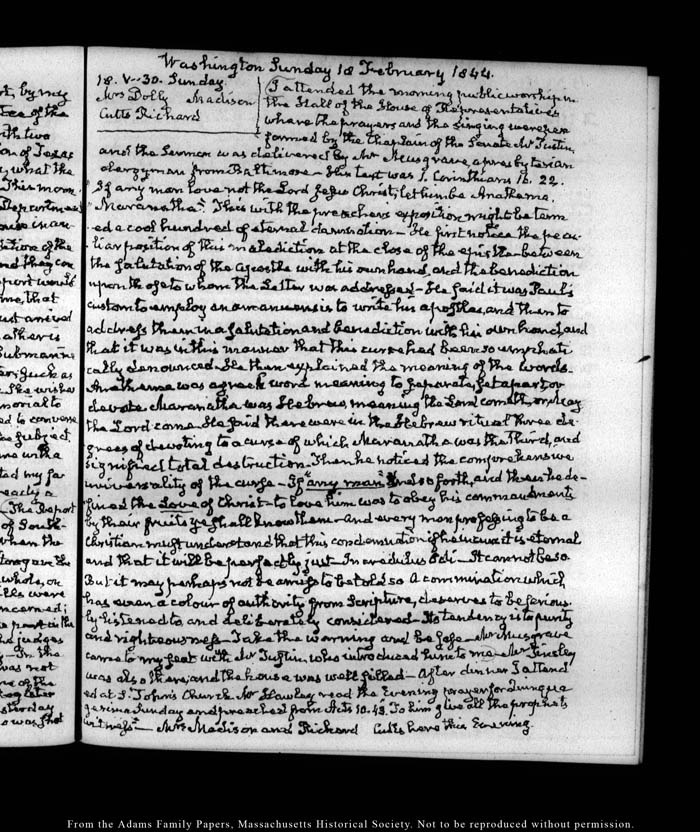 Washington Sunday 18 February 1844.
18. V—30. Sunday.
Mrs Dolly Madison
Cutts Richard
I attended the morning public worship in
the Hall of the House of Representatives
where the prayers and the singing were per
formed by the Chaplain of the Senate Mr Tustin,
and the Sermon was delivered by Mr Musgrave, a presbyterian
clergyman from Baltimore— His text was 1. Corinthians 16. 22.
"If any man love not the Lord Jesus Christ, let him be Anathema.
Maranatha". This with the preacher's exposition might be term
ed a cool hundred of eternal damnation— He first noticed the pecu-
liar position of this malediction at the close of the epistle— between
the salutation of the apostle with his own hand, and the benediction
upon those to whom the Letter was addressed— He said it was Paul's
custom to employ an amanuensis to write his apostles, and then to
address them in a salutation and benediction with his own hand, and
that it was in this manner that this curse had been so emphati
cally denounced. He then explained the meaning of the words.
Anathema was a greek word meaning to separate, set apart or
devote Maranatha was Hebrew, meaning the Lord cometh, or May
the Lord come. He said there were in the Hebrew ritual three de-
grees of devoting to a curse of which Maranatha was the third, and
signified total destruction. Then he noticed the comprehensive
universality of the curse— If "any man" and so forth, and then he de-
fined the Love of Christ— to love him was to obey his commandments
by their fruits ye shall know them— and every man professing to be a
Christian must understand that this condemnation if he incur it is eternal
and that it will be perfectly just— Incredulus odi— It cannot be so
But it may perhaps not be amiss to be told so A commination which
has even a colour of authority from Scripture, deserves to be serious-
ly listened to and deliberately considered— Its tendency is to purity
and righteousness— Take the warning and be safe— Mr Musgrave
came to my seat with Mr Tustin, who introduced him to me— Mr Tinsley
was also there, and the house was well filled— After dinner I attend
ed at St John's Church Mr Hawley read the Evening prayer for Quinqua
gesima Sunday and preached from Acts 10. 43. To him give all the prophets
witness"— Mrs Madison and Richard Cutts here this Evening
From the Adams Family Papers, Massachusetts Historical Society. Not to be reproduced without permission.